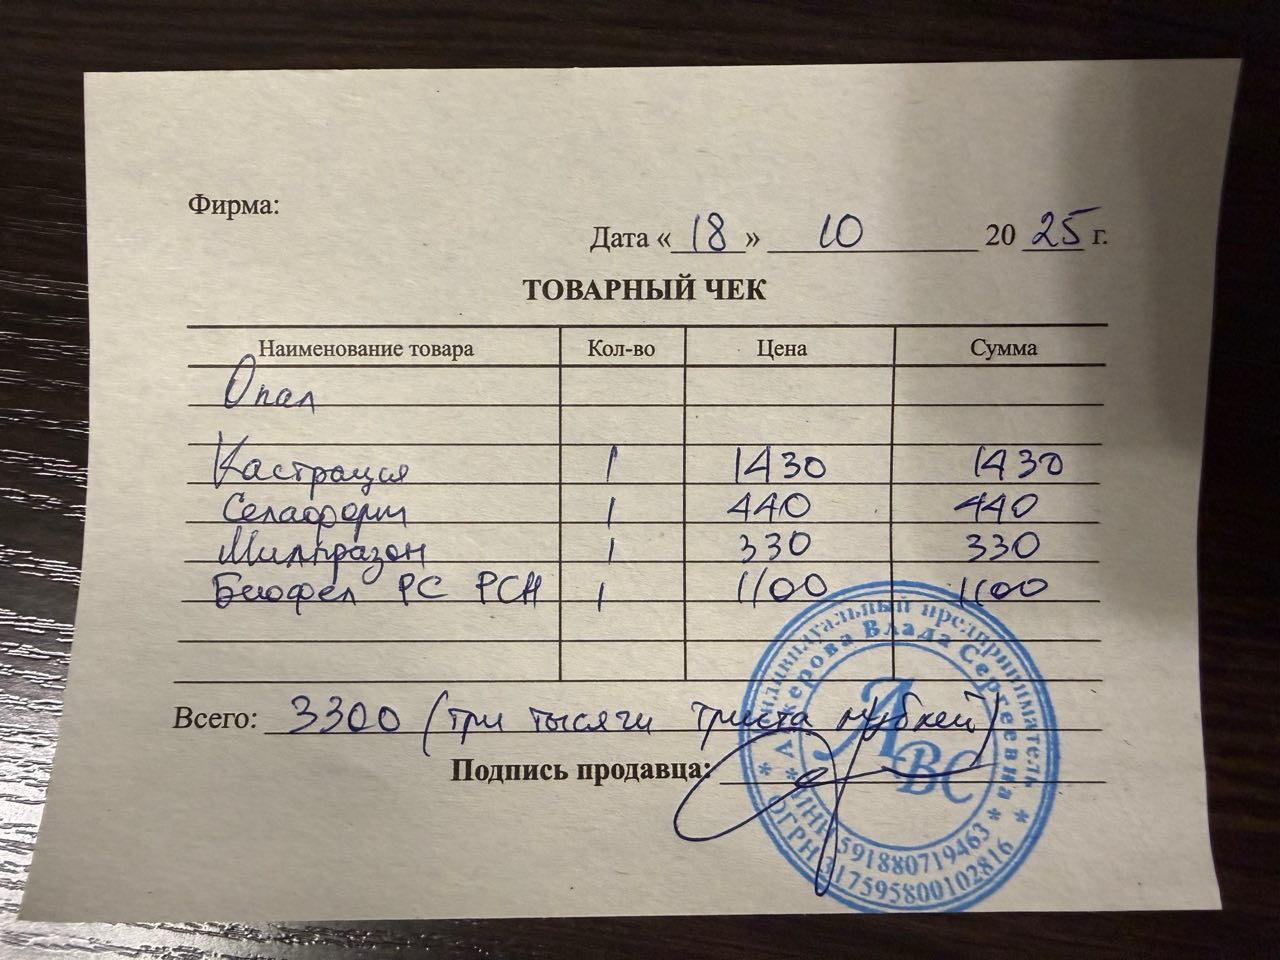 Фирма:
Дата « 18 » 10 20 25 г.
ТОВАРНЫЙ ЧЕК
Наименование товара Кол-во Цена Сумма
Опал
Кастрация 1 1430 1430
Селафорт 1 440 440
Милпразон 1 330 330
Биофел РС РСН 1 1100 1100
Всего: 3300 (три тысячи триста рублей)
Подпись продавца:
* Индивидуальный предприниматель *
Владa Сергеевна
АВС
* ИНН 591880719463 *
ОГРН 317595800102816